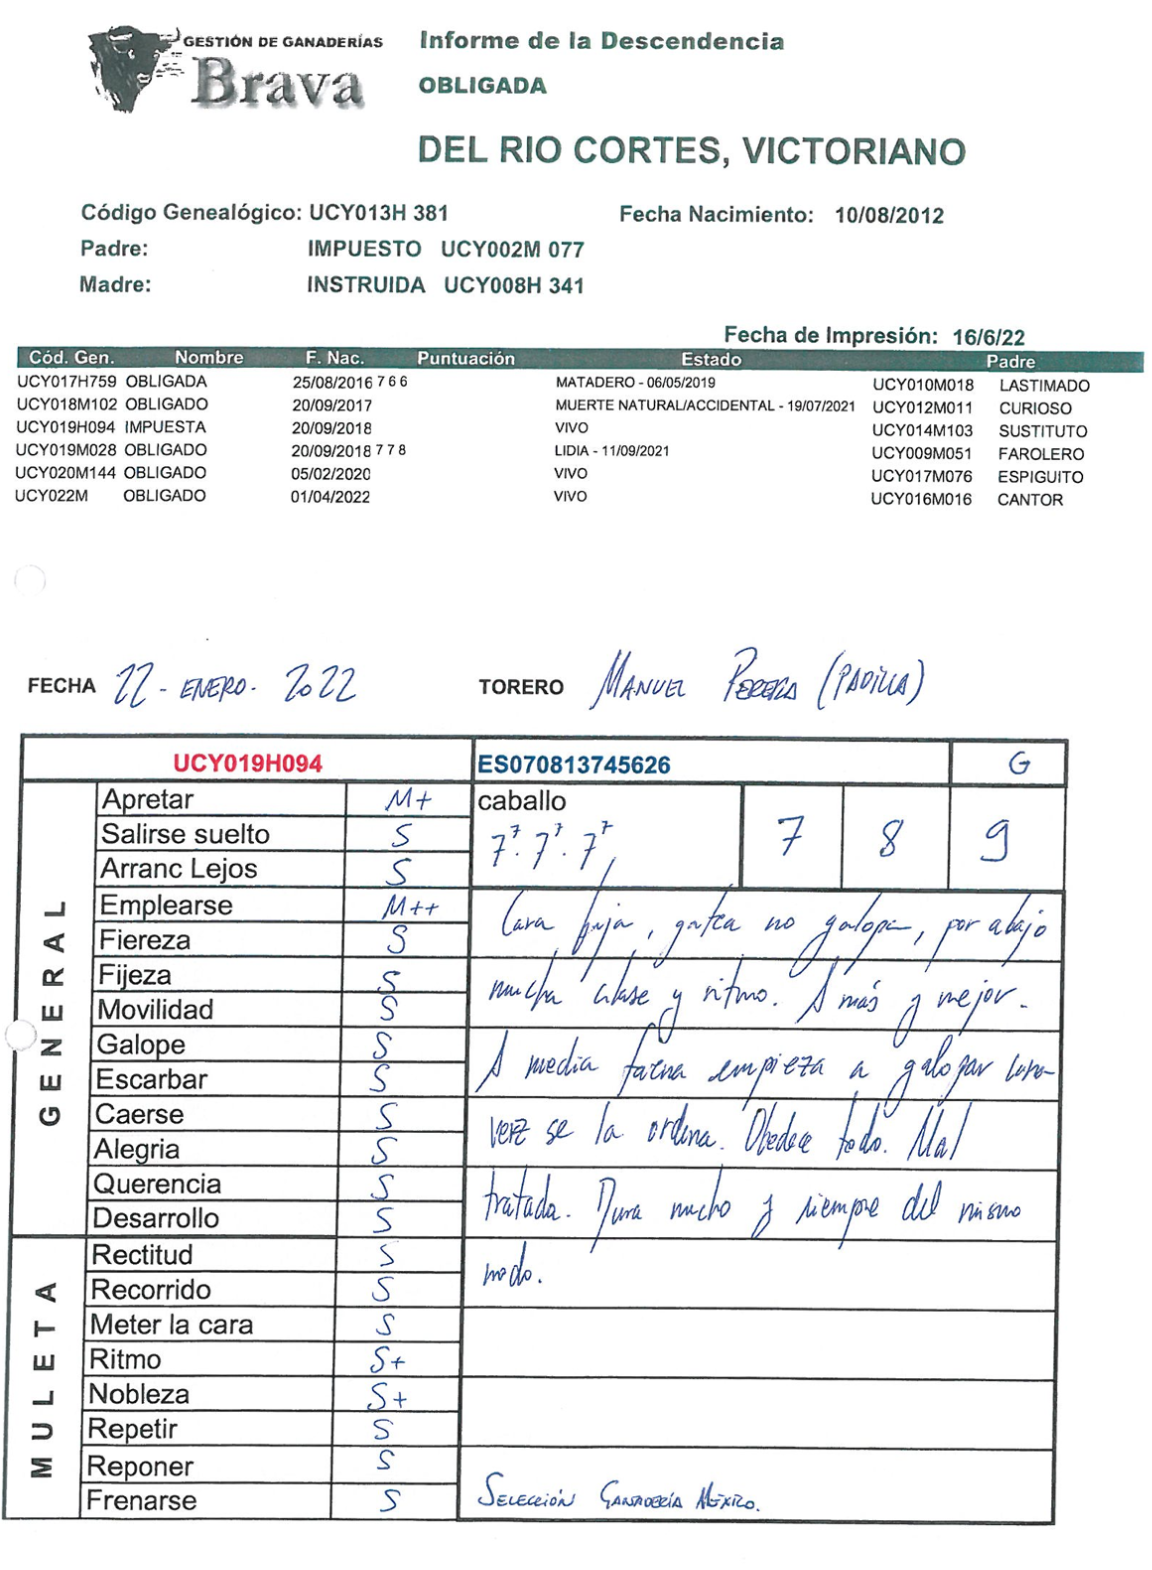 GESTIÓN DE GANADERÍAS
Brava
Informe de la Descendencia
OBLIGADA
DEL RIO CORTES, VICTORIANO
Código Genealógico: UCY013H 381 Fecha Nacimiento: 10/08/2012
Padre: IMPUESTO UCY002M 077
Madre: INSTRUIDA UCY008H 341
Fecha de Impresión: 16/6/22
Cód. Gen. Nombre F. Nac. Puntuación Estado Padre
UCY017H759 OBLIGADA 25/08/2016 7 6 6 MATADERO - 06/05/2019 UCY010M018 LASTIMADO
UCY018M102 OBLIGADO 20/09/2017 MUERTE NATURAL/ACCIDENTAL - 19/07/2021 UCY012M011 CURIOSO
UCY019H094 IMPUESTA 20/09/2018 VIVO UCY014M103 SUSTITUTO
UCY019M028 OBLIGADO 20/09/2018 7 7 8 LIDIA - 11/09/2021 UCY009M051 FAROLERO
UCY020M144 OBLIGADO 05/02/2020 VIVO UCY017M076 ESPIGUITO
UCY022M OBLIGADO 01/04/2022 VIVO UCY016M016 CANTOR
FECHA 22 - ENERO - 2022 TORERO MANUEL PERERA (PADILLA)
UCY019H094 ES070813745626 G
GENERAL
Apretar M+ caballo
Salirse suelto S 7⁷. 7⁷. 7⁷, 7 8 9
Arranc Lejos S
Emplearse M++ Cara fija, gatea no galopa, por abajo
Fiereza S
Fijeza S mucha clase y ritmo. A más y mejor.
Movilidad S
Galope S A media faena empieza a galopar
Escarbar S
Caerse S vez se la ordena. Obedece todo. Mal
Alegria S
Querencia S tratada. Dura mucho y siempre del mismo
Desarrollo S
MULETA
Rectitud S modo.
Recorrido S
Meter la cara S
Ritmo S+
Nobleza S+
Repetir S
Reponer S
Frenarse S SELECCIÓN GANADERÍA MÉXICO.